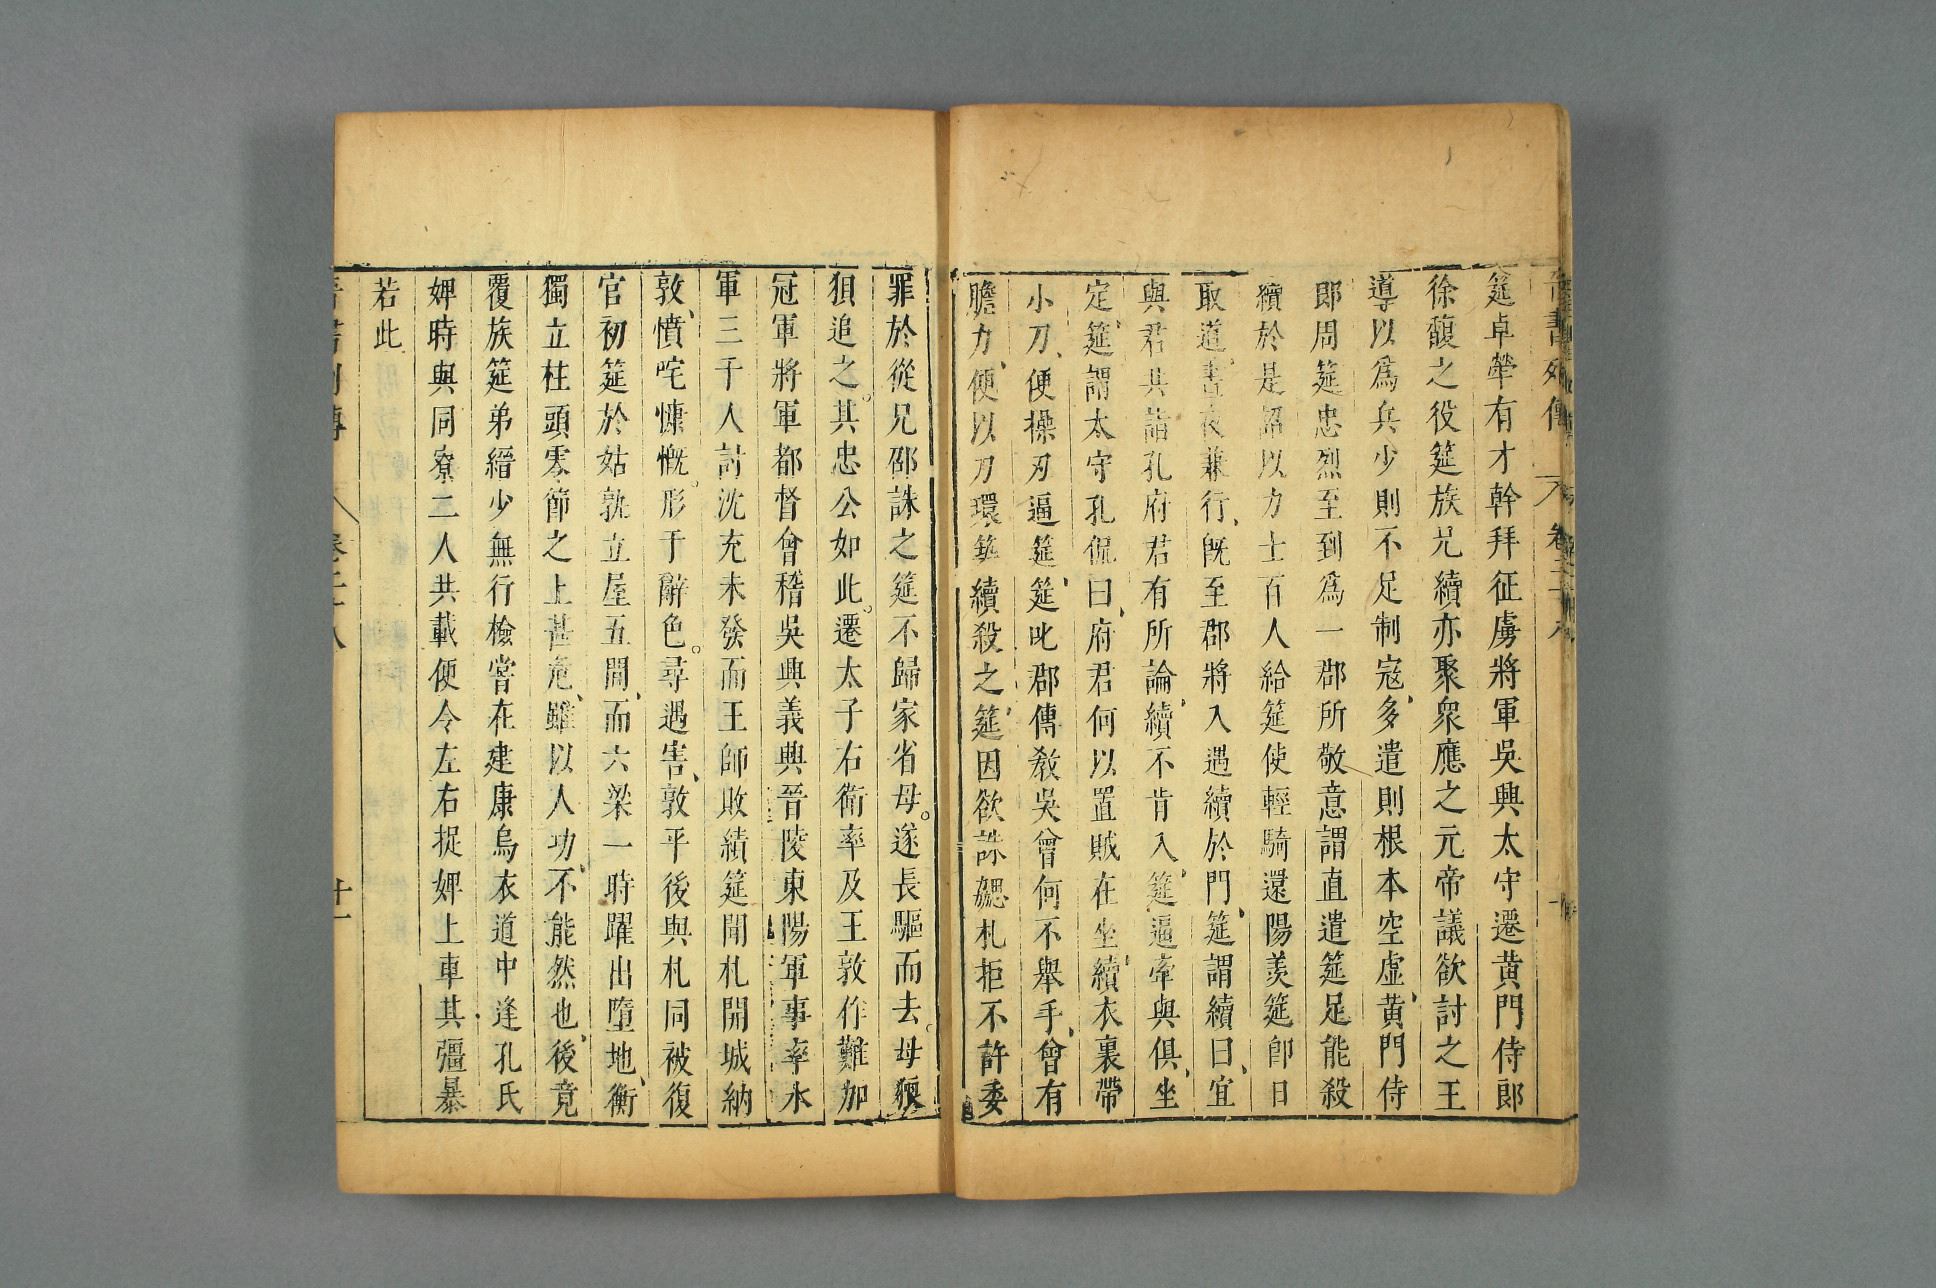 晉書列傳 卷二十八
筵卓犖有才幹拜征虜將軍吳興太守遷黄門侍郎
徐馥之役筵族兄續亦聚衆應之元帝議欲討之王
導以爲兵少則不足制寇多遣則根本空虛黄門侍
郎周筵忠烈至到爲一郡所敬意謂直遣筵足能殺
續於是詔以力士百人給筵使輕騎還陽羡筵卽日
取道晝夜兼行旣至郡將入遇續於門筵謂續曰宜
與君共詣孔府君有所論續不肯入筵逼牽與俱坐
定筵謂太守孔侃曰府君何以置賊在坐續衣裏帶
小刀便操刃逼筵筵叱郡傳教吳曾何不舉手曾有
膽力便以刀環築續殺之筵因欲誅勰札拒不許委
罪於從兄邵誅之筵不歸家省母遂長驅而去母狼
狽追之其忠公如此遷太子右衛率及王敦作難加
冠軍將軍都督會稽吳興義興晉陵東陽軍事率水
軍三千人討沈充未發而王師敗績筵聞札開城納
敦憤咤慷慨形于辭色尋遇害敦平後與札同被復
官初筵於姑孰立屋五間而六梁一時躍出墮地衡
獨立柱頭零節之上甚危雖以人功不能然也後竟
覆族筵弟縉少無行檢嘗在建康烏衣道中逢孔氏
婢時與同寮二人共載便令左右捉婢上車其彊暴
若此
晉書列傳 卷二十八 十一